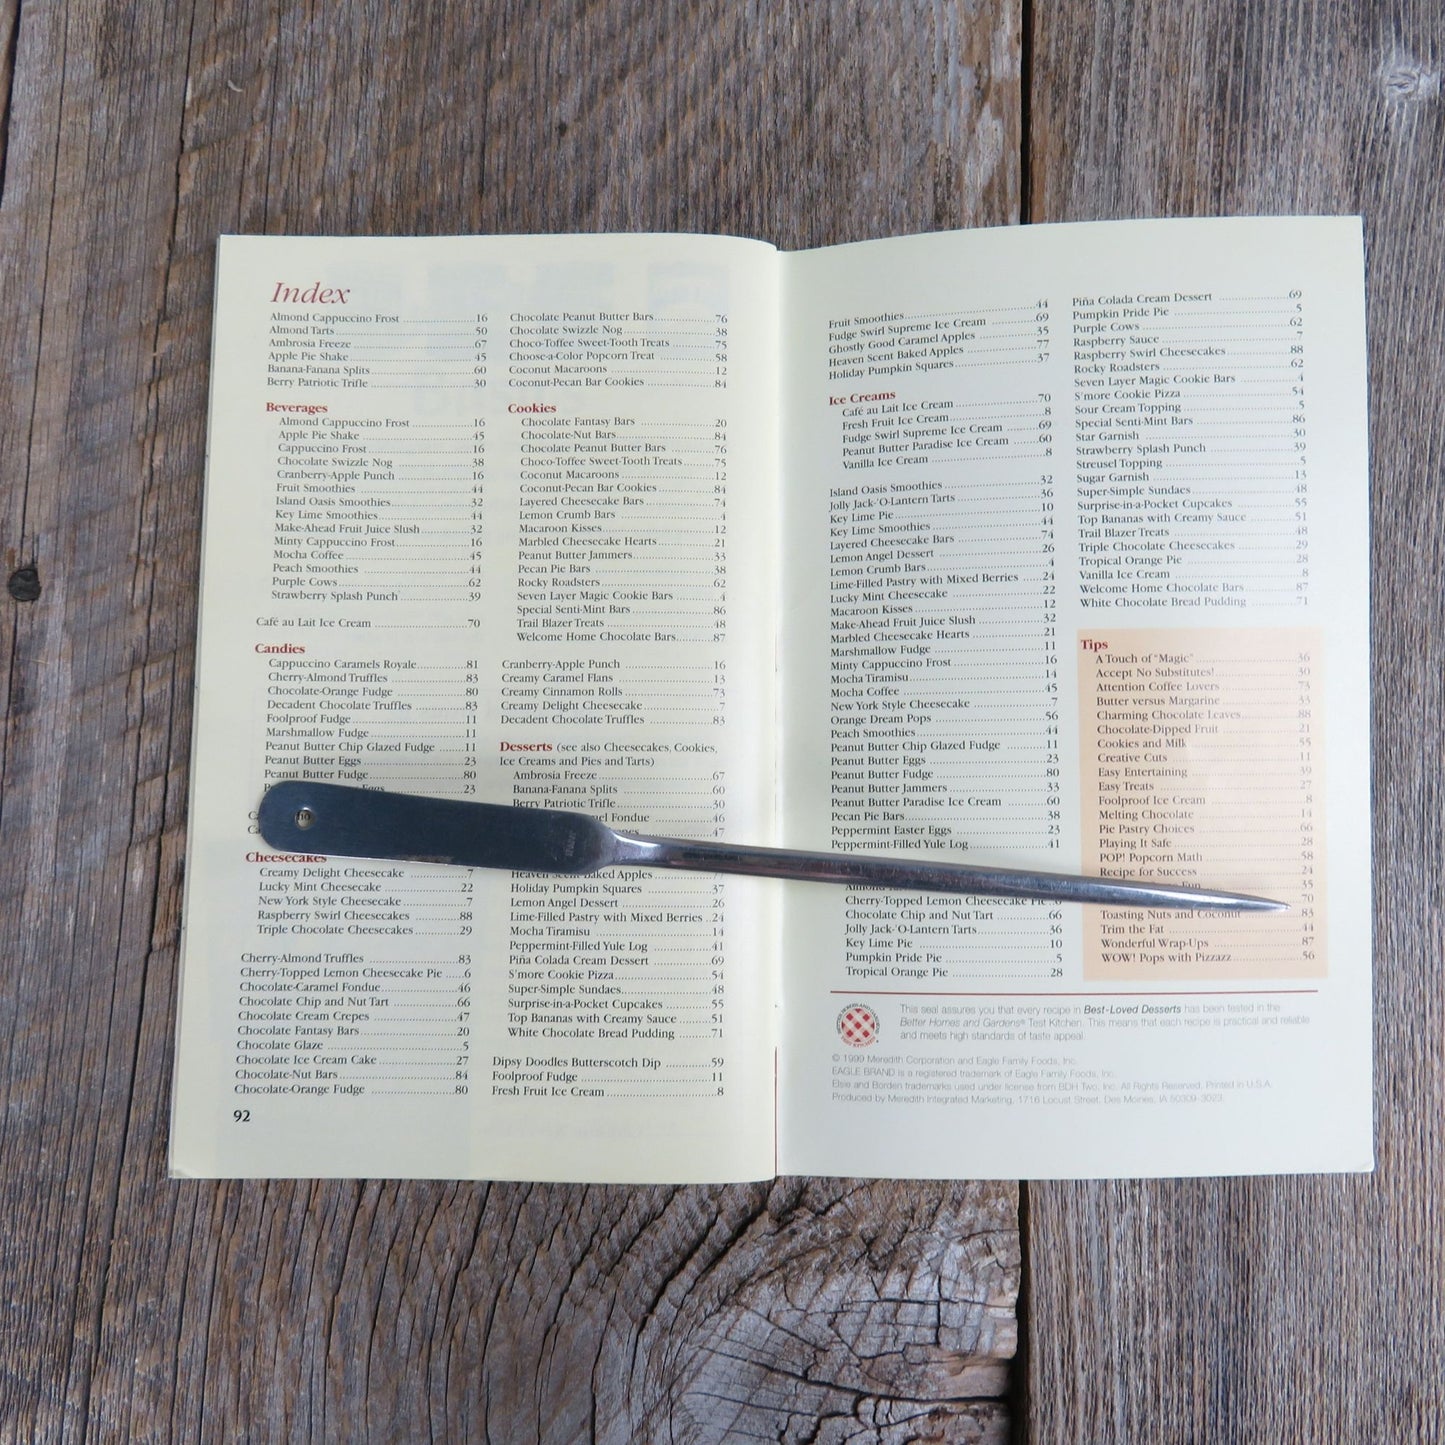 Index
Almond Cappuccino Frost 16
Almond Tarts 50
Ambrosia Freeze 67
Apple Pie Shake 45
Banana-Fanana Splits 60
Berry Patriotic Trifle 30
Beverages
Almond Cappuccino Frost 16
Apple Pie Shake 45
Cappuccino Frost 16
Chocolate Swizzle Nog 38
Cranberry-Apple Punch 16
Fruit Smoothies 44
Island Oasis Smoothies 32
Key Lime Smoothies 44
Make-Ahead Fruit Juice Slush 32
Minty Cappuccino Frost 16
Mocha Coffee 45
Peach Smoothies 44
Purple Cows 62
Strawberry Splash Punch 39
Café au Lait Ice Cream 70
Candies
Cappuccino Caramels Royale 81
Cherry-Almond Truffles 83
Chocolate-Orange Fudge 80
Decadent Chocolate Truffles 83
Foolproof Fudge 11
Marshmallow Fudge 11
Peanut Butter Chip Glazed Fudge 11
Peanut Butter Eggs 23
Peanut Butter Fudge 80
Eggs 23
Cheesecakes
Creamy Delight Cheesecake 7
Lucky Mint Cheesecake 22
New York Style Cheesecake 7
Raspberry Swirl Cheesecakes 88
Triple Chocolate Cheesecakes 29
Cherry-Almond Truffles 83
Cherry-Topped Lemon Cheesecake Pie 6
Chocolate-Caramel Fondue 46
Chocolate Chip and Nut Tart 66
Chocolate Cream Crepes 47
Chocolate Fantasy Bars 20
Chocolate Glaze 5
Chocolate Ice Cream Cake 27
Chocolate-Nut Bars 84
Chocolate-Orange Fudge 80
92
Chocolate Peanut Butter Bars 76
Chocolate Swizzle Nog 38
Choco-Toffee Sweet-Tooth Treats 75
Choose-a-Color Popcorn Treat 58
Coconut Macaroons 12
Coconut-Pecan Bar Cookies 84
Cookies
Chocolate Fantasy Bars 20
Chocolate-Nut Bars 84
Chocolate Peanut Butter Bars 76
Choco-Toffee Sweet-Tooth Treats 75
Coconut Macaroons 12
Coconut-Pecan Bar Cookies 84
Layered Cheesecake Bars 74
Lemon Crumb Bars 4
Macaroon Kisses 12
Marbled Cheesecake Hearts 21
Peanut Butter Jammers 33
Pecan Pie Bars 38
Rocky Roadsters 62
Seven Layer Magic Cookie Bars 4
Special Senti-Mint Bars 86
Trail Blazer Treats 48
Welcome Home Chocolate Bars 87
Cranberry-Apple Punch 16
Creamy Caramel Flans 13
Creamy Cinnamon Rolls 73
Creamy Delight Cheesecake 7
Decadent Chocolate Truffles 83
Desserts (see also Cheesecakes, Cookies,
Ice Creams and Pies and Tarts)
Ambrosia Freeze 67
Banana-Fanana Splits 60
Berry Patriotic Trifle 30
Fondue 46
47
Heaven Scent Baked Apples 77
Holiday Pumpkin Squares 37
Lemon Angel Dessert 26
Lime-Filled Pastry with Mixed Berries 24
Mocha Tiramisu 14
Peppermint-Filled Yule Log 41
Piña Colada Cream Dessert 69
S'more Cookie Pizza 54
Super-Simple Sundaes 48
Surprise-in-a-Pocket Cupcakes 55
Top Bananas with Creamy Sauce 51
White Chocolate Bread Pudding 71
Dipsy Doodles Butterscotch Dip 59
Foolproof Fudge 11
Fresh Fruit Ice Cream 8
Fruit Smoothies 44
Fudge Swirl Supreme Ice Cream 69
Ghostly Good Caramel Apples 35
Heaven Scent Baked Apples 77
Holiday Pumpkin Squares 37
Ice Creams
Café au Lait Ice Cream 70
Fresh Fruit Ice Cream 8
Fudge Swirl Supreme Ice Cream 69
Peanut Butter Paradise Ice Cream 60
Vanilla Ice Cream 8
Island Oasis Smoothies 32
Jolly Jack-'O-Lantern Tarts 36
Key Lime Pie 10
Key Lime Smoothies 44
Layered Cheesecake Bars 74
Lemon Angel Dessert 26
Lemon Crumb Bars 4
Lime-Filled Pastry with Mixed Berries 24
Lucky Mint Cheesecake 22
Macaroon Kisses 12
Make-Ahead Fruit Juice Slush 32
Marbled Cheesecake Hearts 21
Marshmallow Fudge 11
Minty Cappuccino Frost 16
Mocha Tiramisu 14
Mocha Coffee 45
New York Style Cheesecake 7
Orange Dream Pops 56
Peach Smoothies 44
Peanut Butter Chip Glazed Fudge 11
Peanut Butter Eggs 23
Peanut Butter Fudge 80
Peanut Butter Jammers 33
Peanut Butter Paradise Ice Cream 60
Pecan Pie Bars 38
Peppermint Easter Eggs 23
Peppermint-Filled Yule Log 41
Cherry-Topped Lemon Cheesecake Pie 6
Chocolate Chip and Nut Tart 66
Jolly Jack-'O-Lantern Tarts 36
Key Lime Pie 10
Pumpkin Pride Pie 5
Tropical Orange Pie 28
Piña Colada Cream Dessert 69
Pumpkin Pride Pie 5
Purple Cows 62
Raspberry Sauce 7
Raspberry Swirl Cheesecakes 88
Rocky Roadsters 62
Seven Layer Magic Cookie Bars 4
S'more Cookie Pizza 54
Sour Cream Topping 5
Special Senti-Mint Bars 86
Star Garnish 30
Strawberry Splash Punch 39
Streusel Topping 5
Sugar Garnish 13
Super-Simple Sundaes 48
Surprise-in-a-Pocket Cupcakes 55
Top Bananas with Creamy Sauce 51
Trail Blazer Treats 48
Triple Chocolate Cheesecakes 29
Tropical Orange Pie 28
Vanilla Ice Cream 8
Welcome Home Chocolate Bars 87
White Chocolate Bread Pudding 71
Tips
A Touch of "Magic" 36
Accept No Substitutes! 30
Attention Coffee Lovers 73
Butter versus Margarine 33
Charming Chocolate Leaves 88
Chocolate-Dipped Fruit 21
Cookies and Milk 55
Creative Cuts 11
Easy Entertaining 39
Easy Treats 27
Foolproof Ice Cream 8
Melting Chocolate 14
Pie Pastry Choices 66
Playing It Safe 28
POP! Popcorn Math 58
Recipe for Success 24
Fun 35
70
Toasting Nuts and Coconut 83
Trim the Fat 44
Wonderful Wrap-Ups 87
WOW! Pops with Pizzazz 56
This seal assures you that every recipe in Best-Loved Desserts has been tested in the
Better Homes and Gardens® Test Kitchen. This means that each recipe is practical and reliable
and meets high standards of taste appeal.
© 1999 Meredith Corporation and Eagle Family Foods, Inc.
EAGLE BRAND is a registered trademark of Eagle Family Foods, Inc.
Elsie and Borden trademarks used under license from BDH Two, Inc. All Rights Reserved. Printed in U.S.A.
Produced by Meredith Integrated Marketing, 1716 Locust Street, Des Moines, IA 50309-3023.